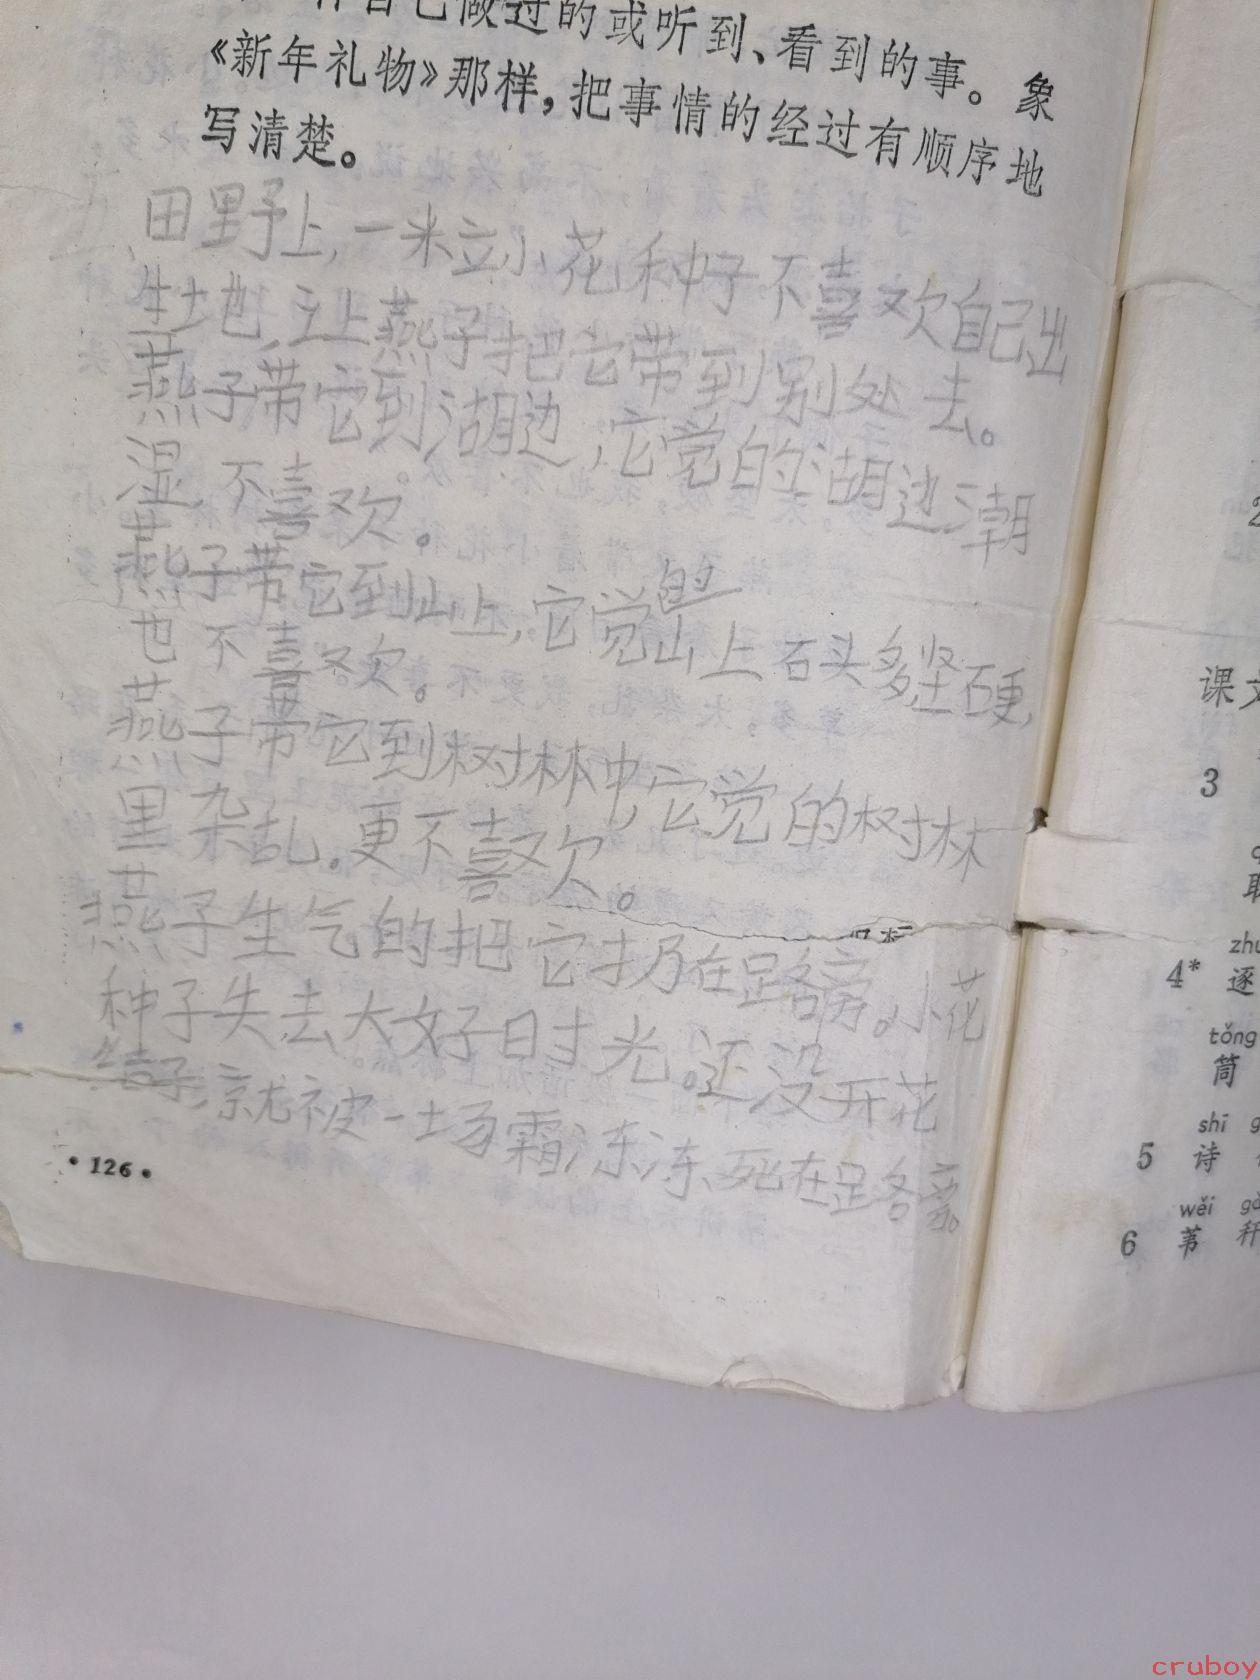 自己做过的或听到、看到的事。象
《新年礼物》那样，把事情的经过有顺序地
写清楚。
田野上，一粒小花种子不喜欢自己出
生土地，让燕子把它带到别处去。
燕子带它到湖边，它觉的湖边潮
湿，不喜欢。
燕子带它到山上，它觉的山上石头多，坚硬，
也不喜欢。
燕子带它到树林中，它觉的树林
里杂乱。更不喜欢。
燕子生气的把它扔在路旁。小花
种子失去大好时光。还没开花
结子，就被一场霜冻冻死在路旁。
·126·
课文
3
zhú
4* 逐
tǒng
筒
shī
5 诗
wěi
6 苇 秆
cruboy